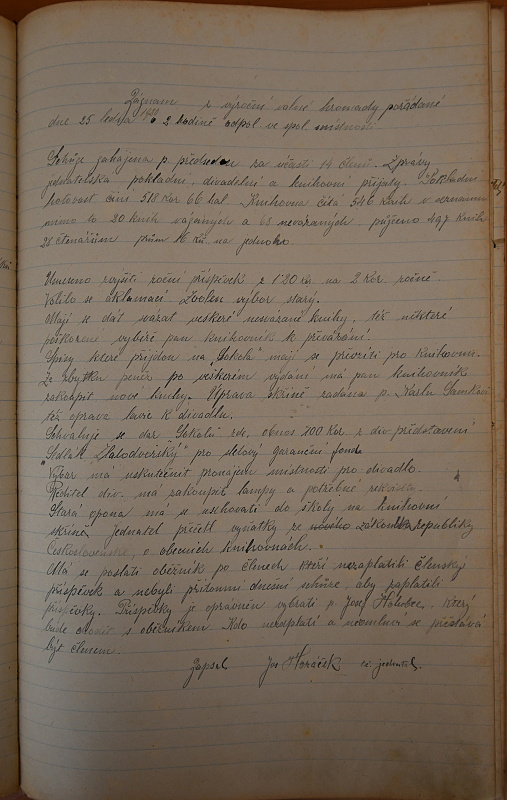 Záznam z výroční valné hromady pořádané
dne 25 ledna 1920 o 2 hodině odpol. ve spol. místnosti.
Schůze zahájena p. předsedou za účasti 14 členů. Zprávy
jednatelská pokladní, divadelní a knihovní přijaty. Pokladní
hotovost činí 518 Kor 66 hal. Knihovna čítá 546 knih v seznamu
mimo to 20 knih vázaných a 68 nevázaných půjčeno 497 knih
28 čtenářům prům 16 kn. na jednoho.
Usneseno zvýšiti roční příspěvek z 1·20 kr. na 2 Kor. ročně.
Volilo se aklamací Zvolen výbor starý.
Mají se dát svázat veškeré nesvázané knihy, též některé
poškozené vybéře pan knihovník k převázání.
Spisy které přijdou na „Sokola" mají se převzíti pro knihovnu.
Ze zbytku peněz po veškerém vydání má pan knihovník
zakoupit nové knihy. Úprava skříně zadána p. Karlu
též oprava lavic k divadlu.
Schvaluje se dar Sokolu zde, obnos 100 Kor z div. představení
pro garanční fond.
Výbor má uskutečnit pronájem místnosti pro divadlo.
Ředitel div. má zakoupit lampy a potřebné
Stará opona má se uschovati do školy na knihovní
skříně. Jednatel přečetl výňatky ze nového zákona Republiky
Československé, o obecních knihovnách.
Má se poslati oběžník po členech kteří nezaplatili členský
příspěvek a nebyli přítomni dnešní schůze, aby zaplatili
příspěvky. Příspěvky je oprávněn vybrati p. Josef Holubec, který
bude choditi s oběžníkem. Kdo nezaplatí a neomluví se přestává
být členem.
Zapsal Jos Horáček t. jednatel.